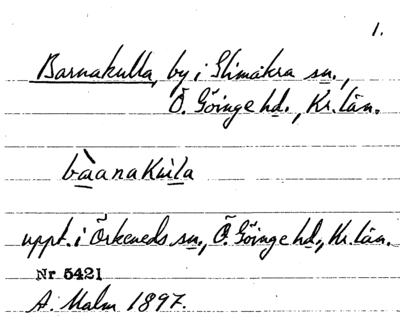 1.
Barnakulla, by i Glimåkra sn.,
Ö. Göinge hd., Kr. län.
bàanakùla
uppt. i Örkeneds sn., Ö. Göinge hd., Kr. län.
Nr 5421
A. Malm 1897.